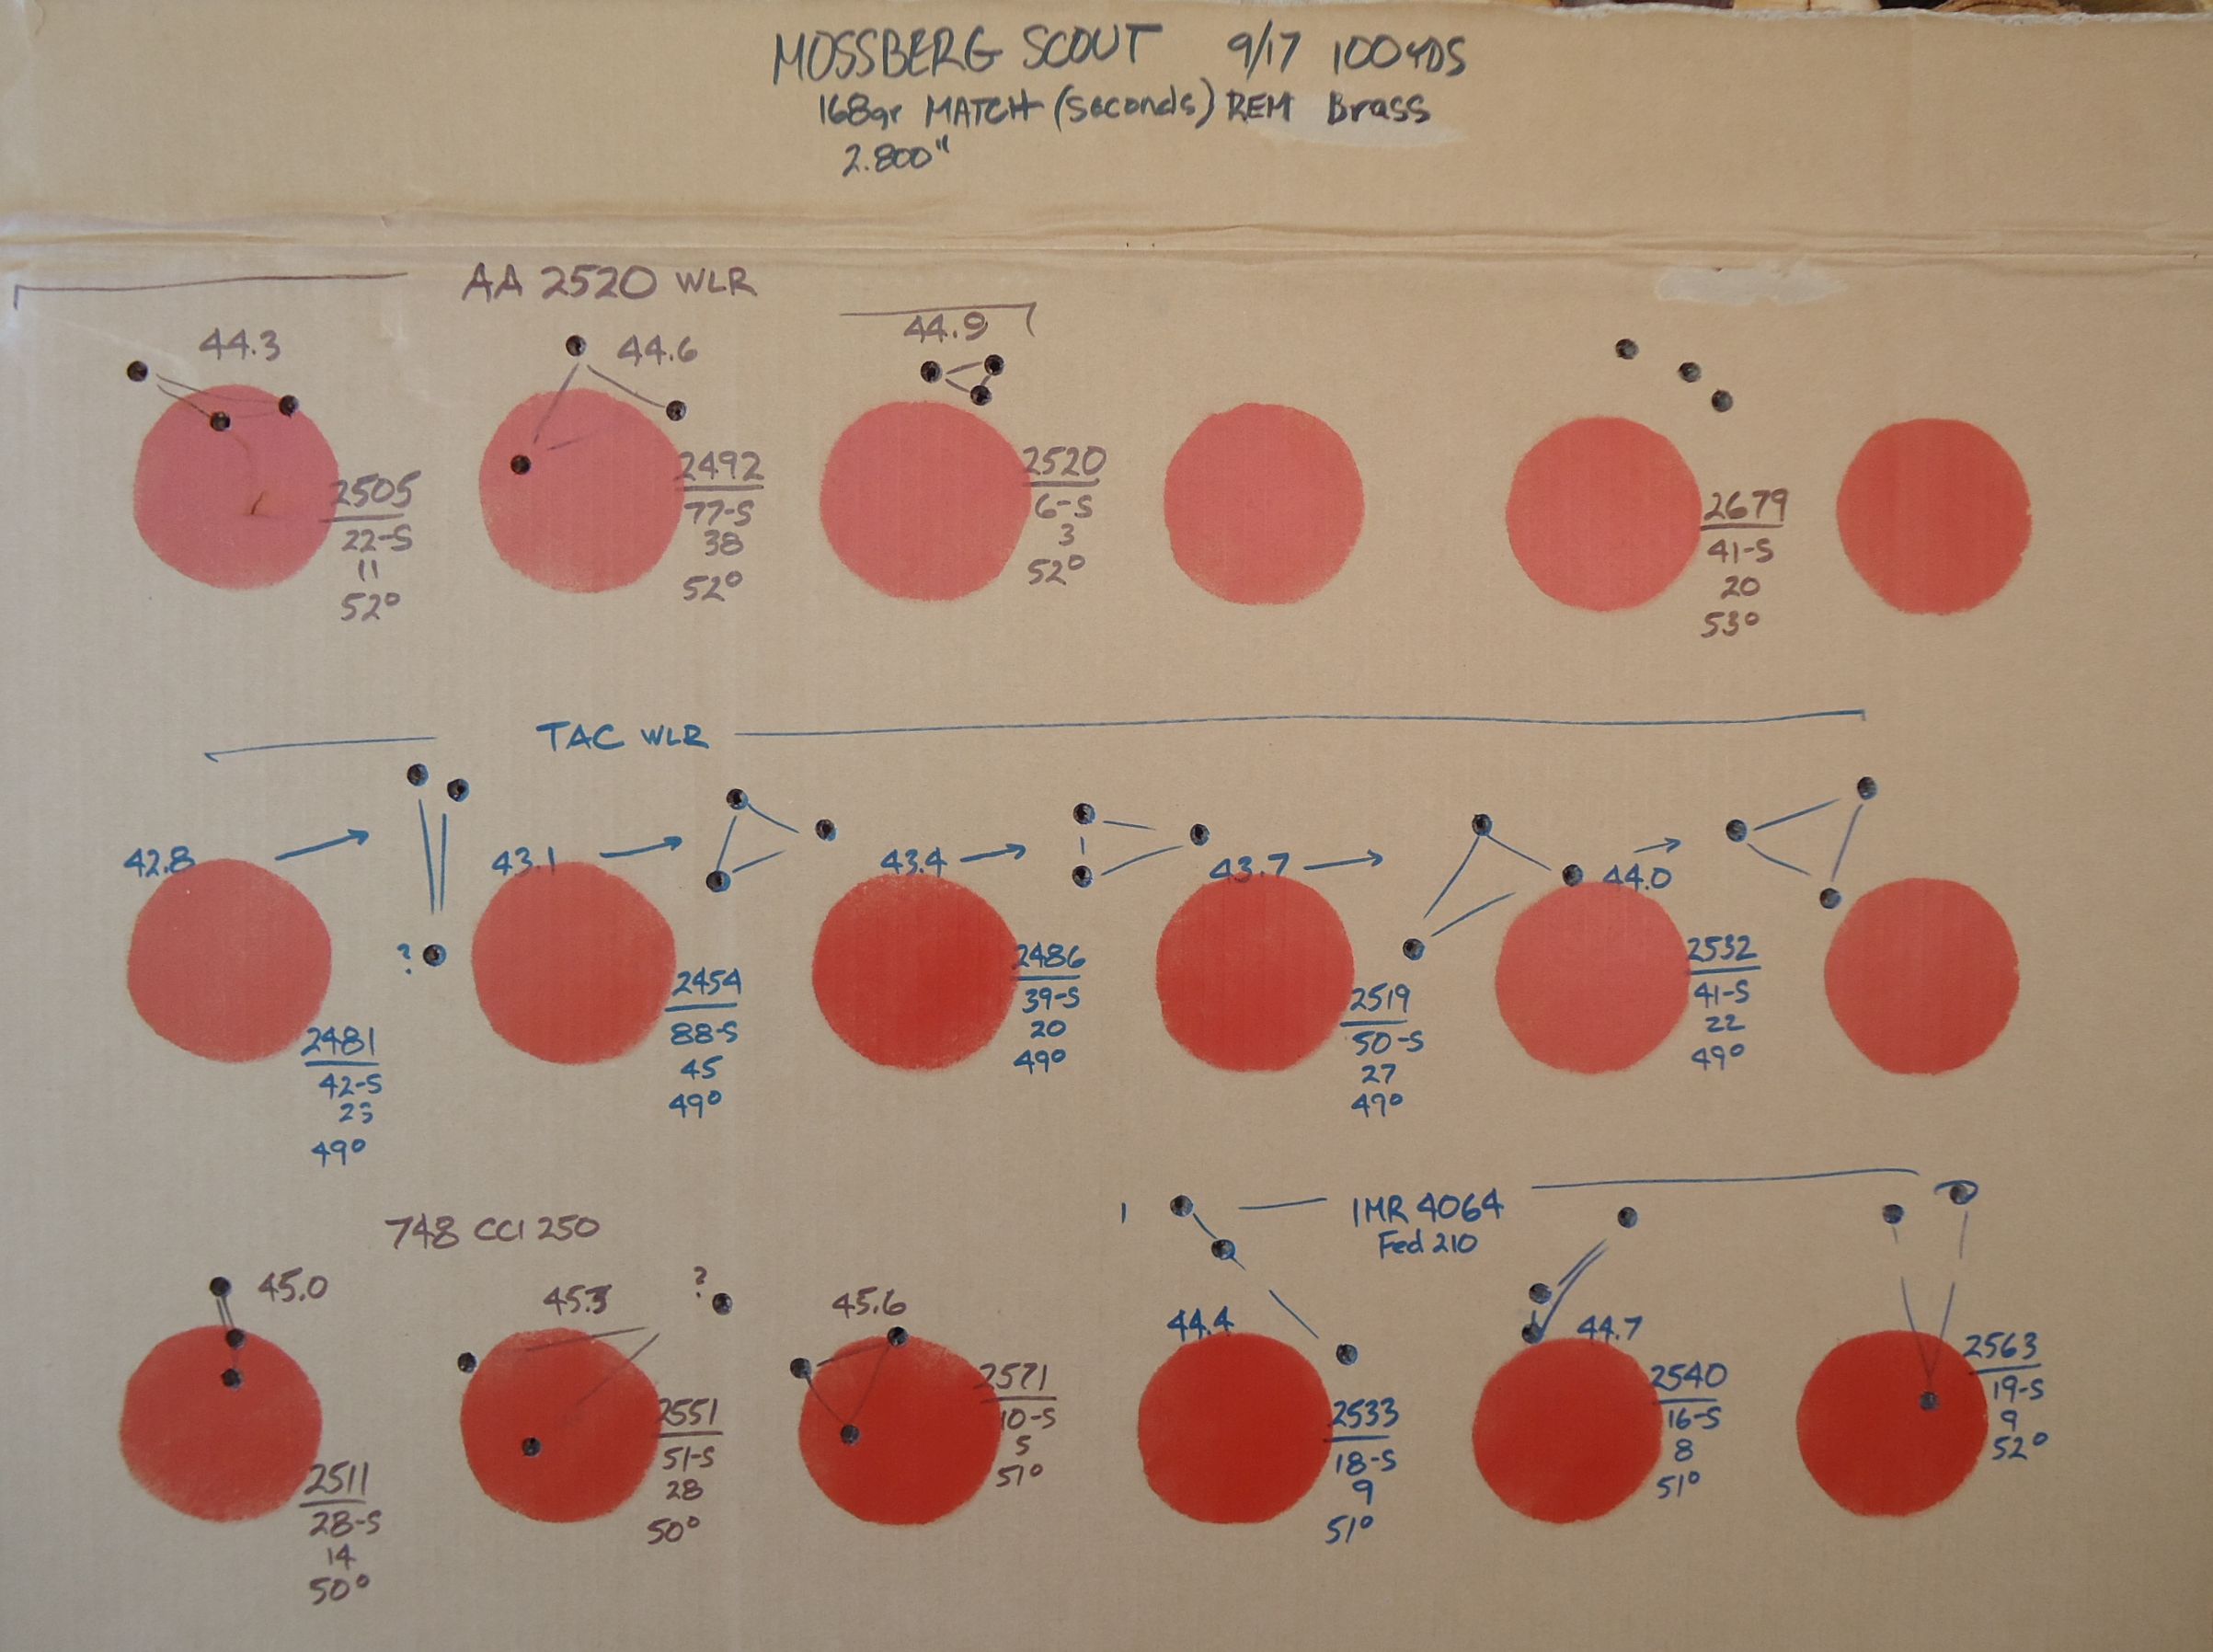 MOSSBERG SCOUT 9/17 100 YDS
168gr MATCH (seconds) REM Brass
2.800"
AA 2520 WLR
44.3
44.6
44.9
2505
22-S
11
52°
2492
77-S
38
52°
2520
6-S
3
52°
2679
41-S
20
53°
TAC WLR
42.8
43.1
43.4
43.7
44.0
?
2481
42-S
23
49°
2454
88-S
45
49°
2486
39-S
20
49°
2519
50-S
27
49°
2532
41-S
22
49°
748 CCI 250
45.0
45.3
?
45.6
2511
28-S
14
50°
2551
51-S
28
50°
2571
10-S
5
51°
IMR 4064
Fed 210
44.4
44.7
2533
18-S
9
51°
2540
16-S
8
51°
2563
19-S
9
52°